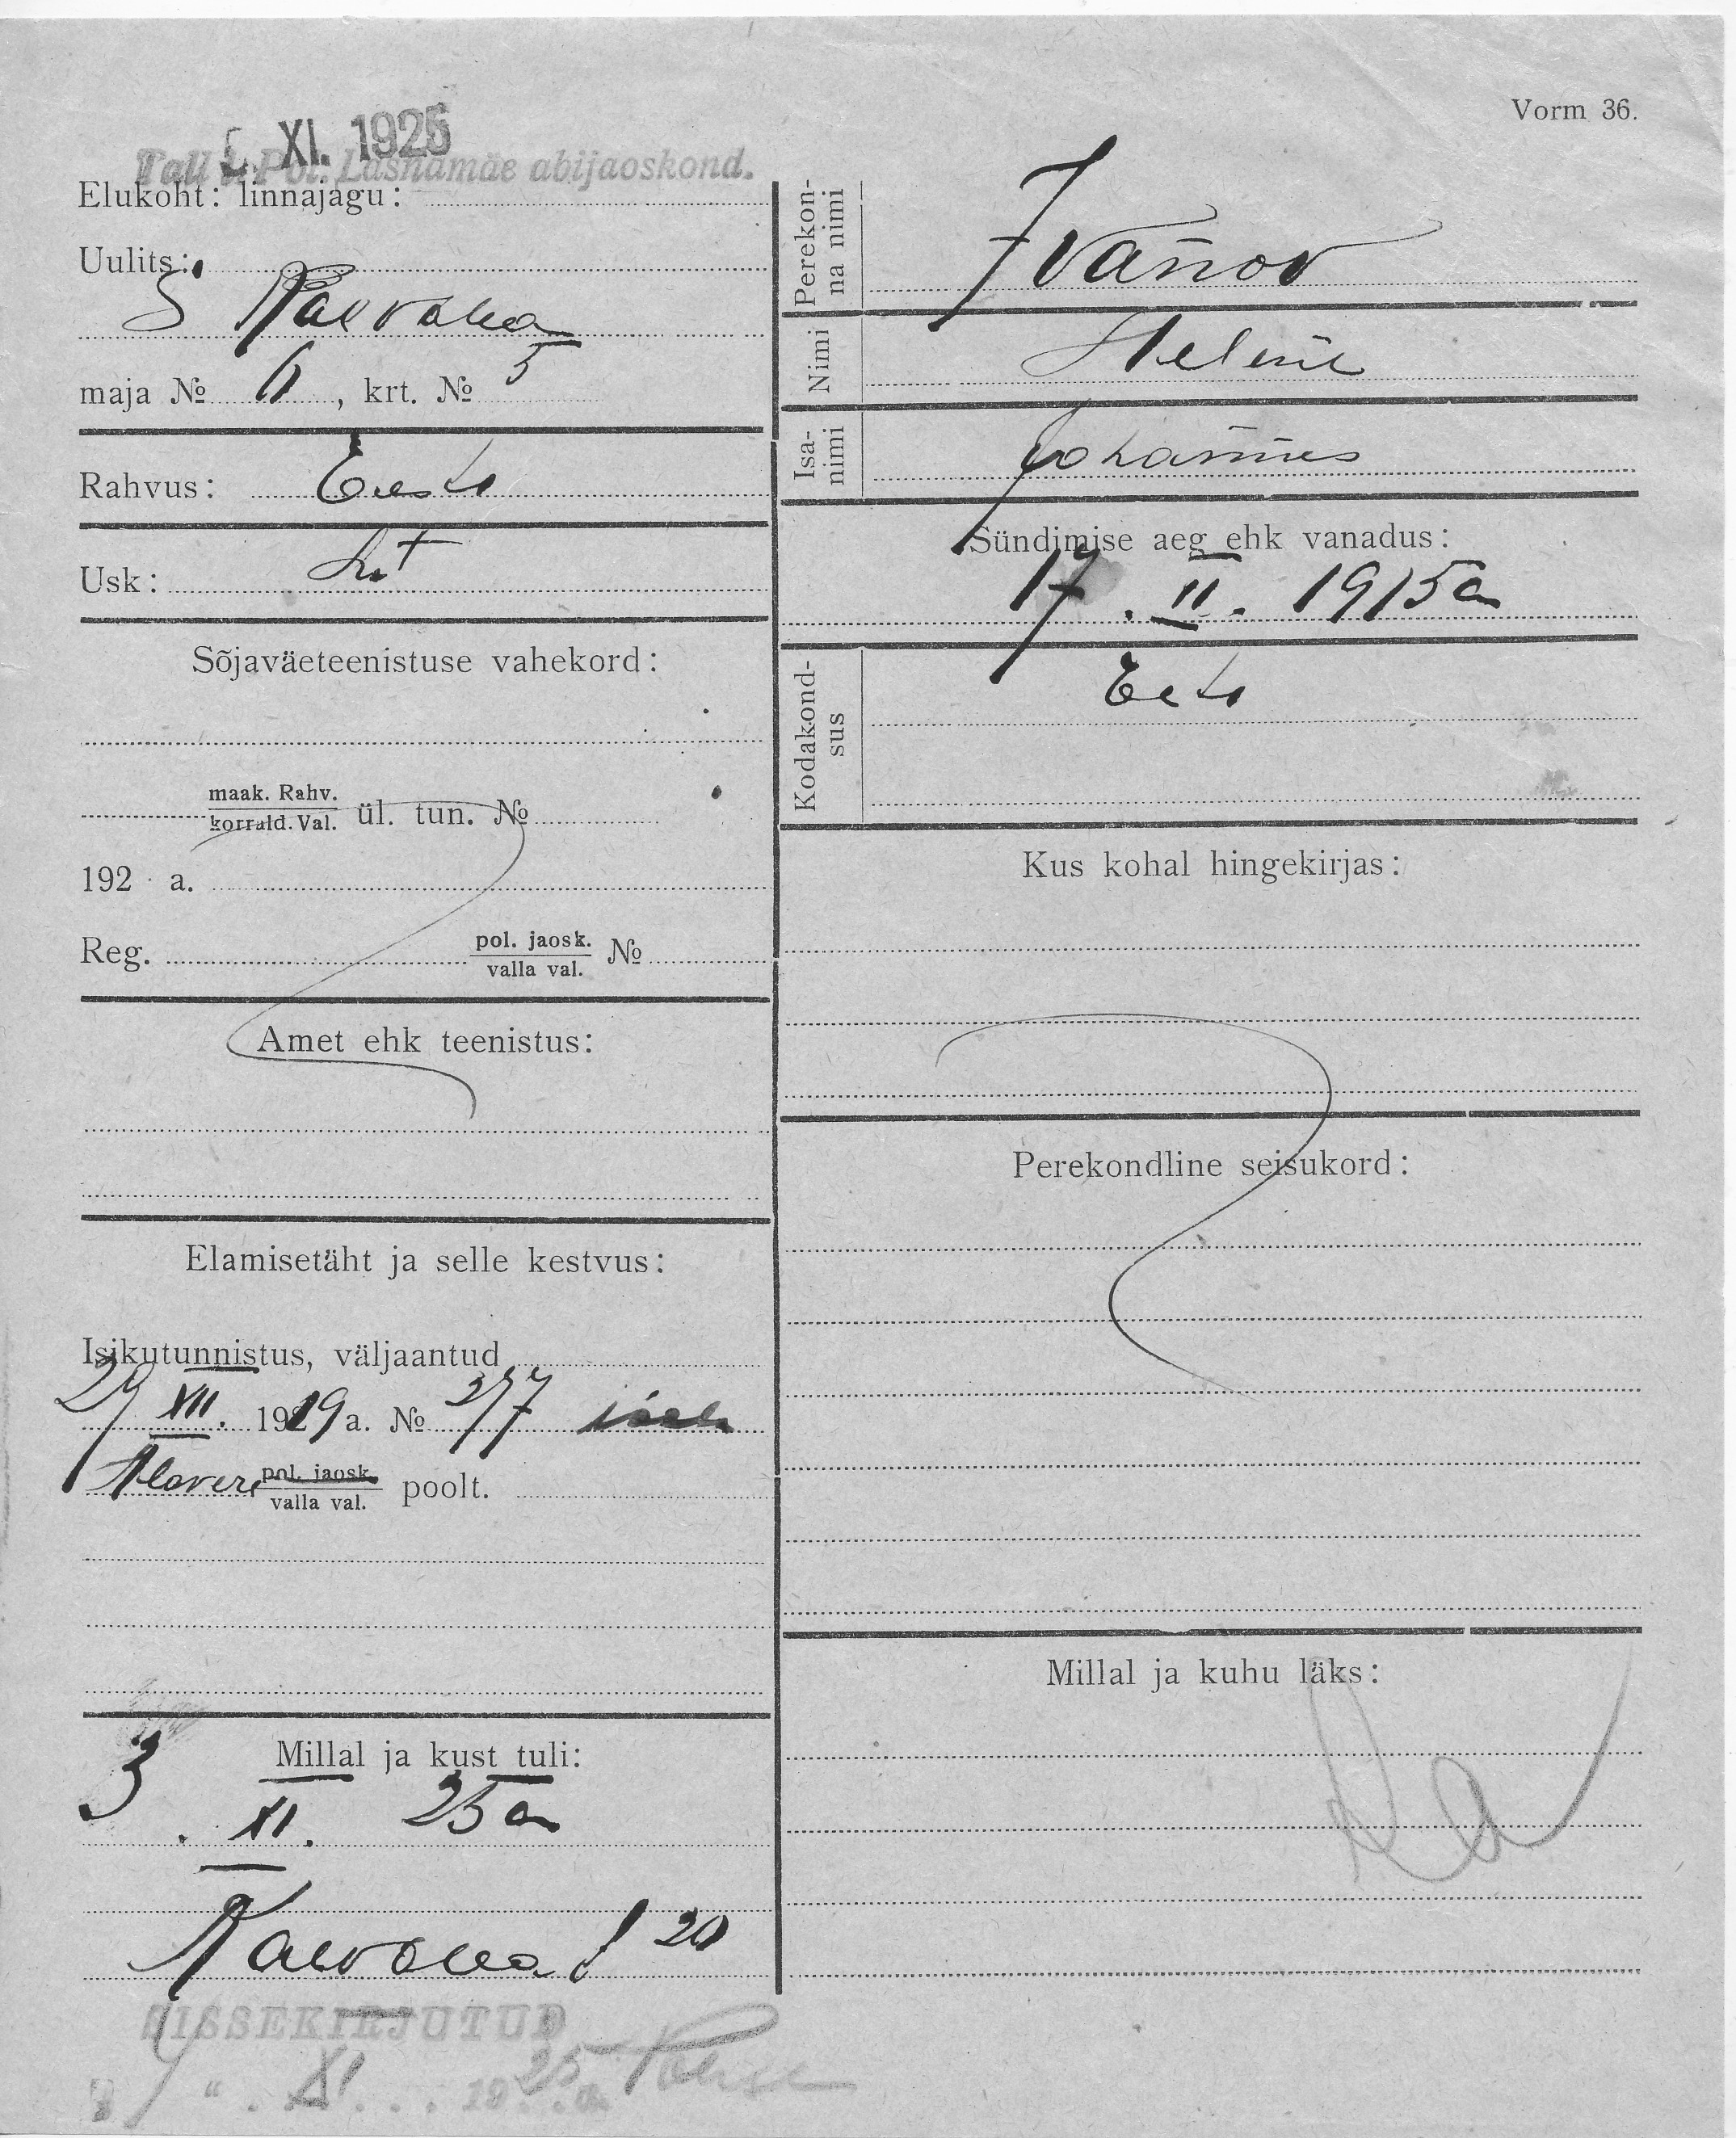 Vorm 36.
XI. 1925
Tall. Pol. Lasnamäe abijaoskond.
Elukoht: linnajagu:
Uulits:
maja № 6, krt. № 5
Rahvus: Eesti
Usk: Lut
Sõjaväeteenistuse vahekord:
maak. Rahv.
korrald. Val. ül. tun. №
192 a.
Reg. pol. jaosk.
valla val. №
Amet ehk teenistus:
Elamisetäht ja selle kestvus:
Isikutunnistus, väljaantud
29 XII. 1919 a. № 277
pol. jaosk.
valla val. poolt.
Millal ja kust tuli:
3. XI. 25 a
20
SISSEKIRJUTUD
XI 1925
Perekonna nimi
Ivanov
Nimi
Helmi
Isanimi
Johannes
Sündimise aeg ehk vanadus:
17. II. 1915 a
Kodakondsus
Eesti
Kus kohal hingekirjas:
Perekondline seisukord:
Millal ja kuhu läks: